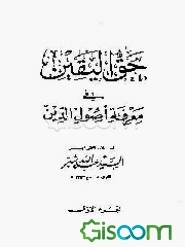 حق اليقين
في
معرفة أصول الدين
السيد عبد الله شبر
Gisoom